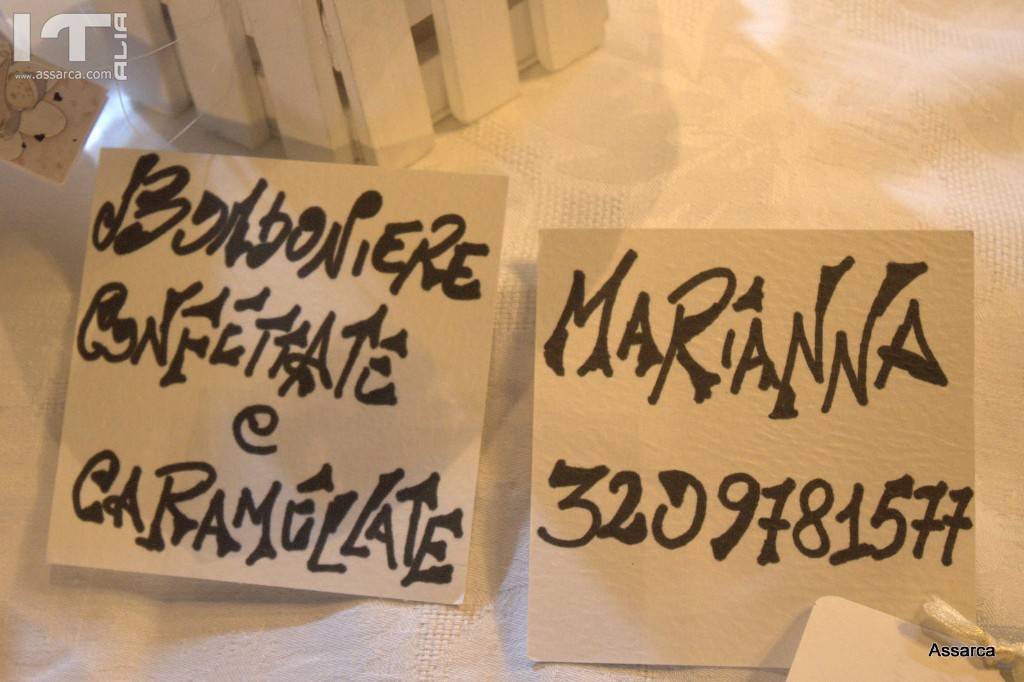 IT
ALIA
www.assarca.com
BOMBONIERE
CONFETTATE
e
CARAMELLATE
MARIANNA
3209781577
Assarca